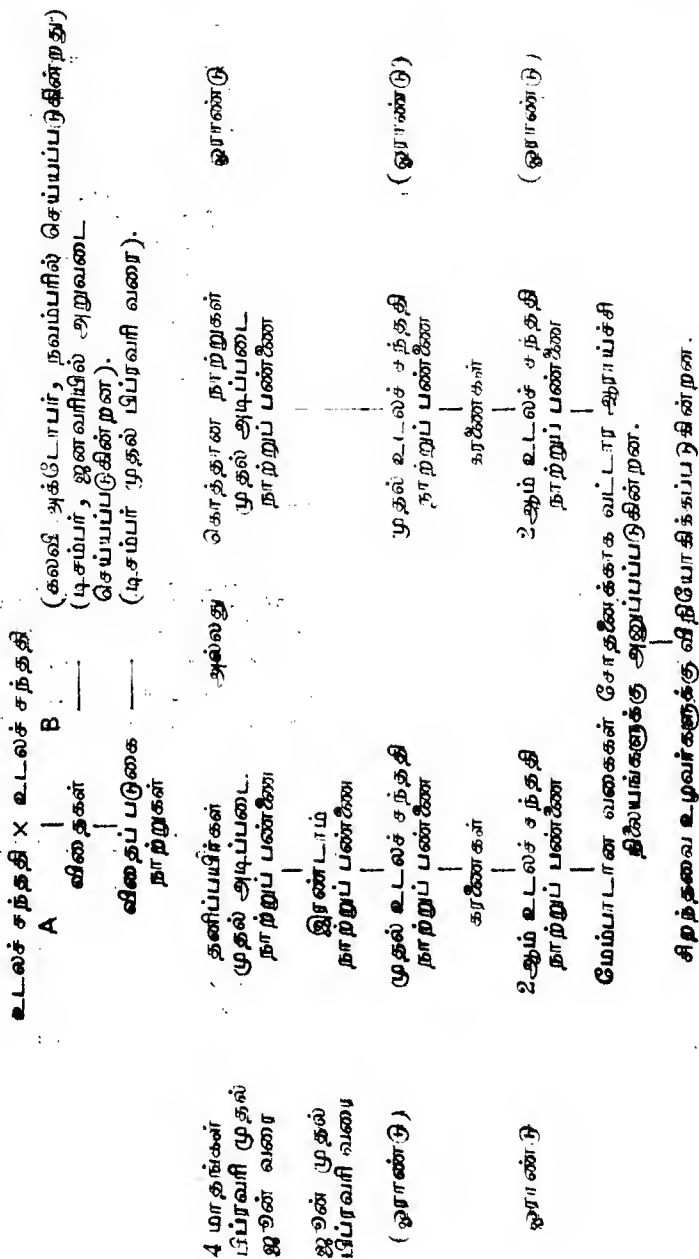 உடலச் சந்ததி × உடலச் சந்ததி
A B
(கலவி அக்டோபர், நவம்பரில் செய்யப்படுகின்றது)
விதைகள்
(டிசம்பர், ஜனவரியில் அறுவடை
செய்யப்படுகின்றன).
விதைப் படுகை
நாற்றுகள்
(டிசம்பர் முதல் பிப்ரவரி வரை).
4 மாதங்கள்
பிப்ரவரி முதல்
ஜூன் வரை
தனிப்பயிர்கள்
முதல் அடிப்படை
நாற்றுப் பண்ணை
அல்லது
கொத்தான நாற்றுகள்
முதல் அடிப்படை
நாற்றுப் பண்ணை
ஓராண்டு
ஜூன் முதல்
பிப்ரவரி வரை
இரண்டாம்
நாற்றுப் பண்ணை
(ஓராண்டு)
முதல் உடலச் சந்ததி
நாற்றுப் பண்ணை
முதல் உடலச் சந்ததி
நாற்றுப் பண்ணை
(ஓராண்டு)
கரணைகள்
கரணைகள்
ஓராண்டு
2ஆம் உடலச் சந்ததி
நாற்றுப் பண்ணை
2ஆம் உடலச் சந்ததி
நாற்றுப் பண்ணை
(ஓராண்டு)
மேம்பாடான வகைகள் சோதனைக்காக வட்டார ஆராய்ச்சி
நிலையங்களுக்கு அனுப்பப்படுகின்றன.
சிறந்தவை உழவர்களுக்கு விநியோகிக்கப்படுகின்றன.